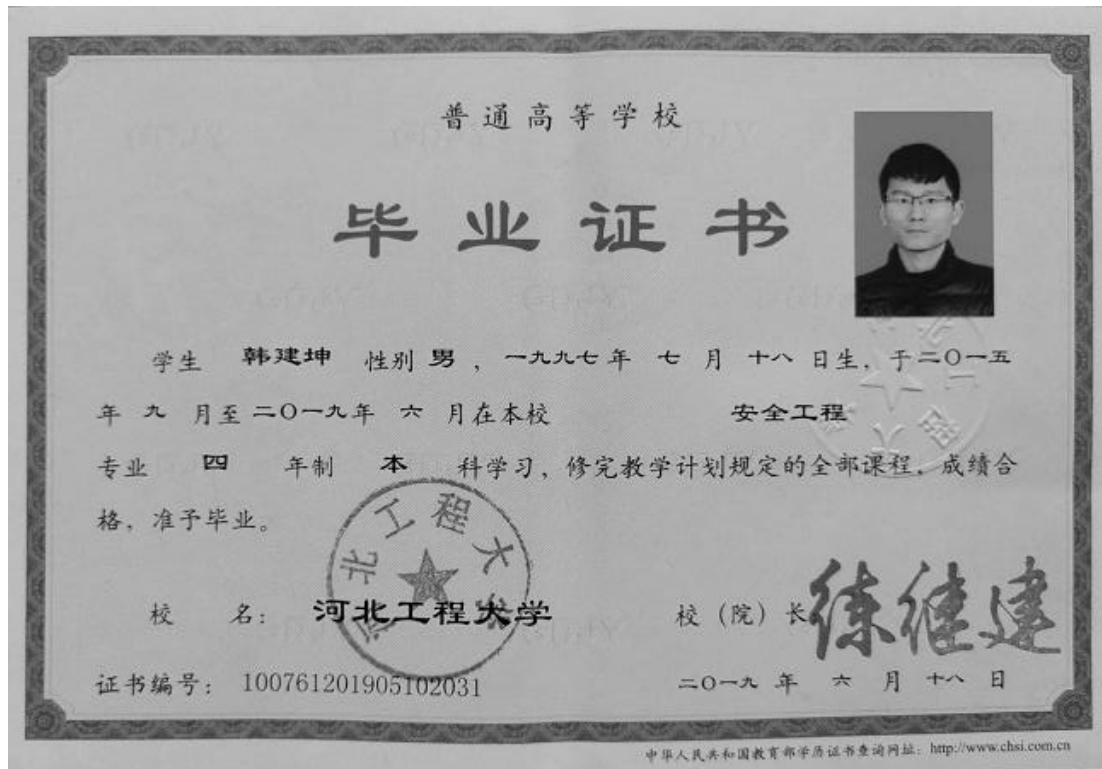 普通高等学校
毕业证书
学生 韩建坤 性别 男 ，一九九七年 七 月 十八 日生，于二〇一五
年 九 月至二〇一九年 六 月在本校 安全工程
专业 四 年制 本 科学习，修完教学计划规定的全部课程，成绩合
格，准予毕业。
河北工程大学
校 名：河北工程大学 校（院）长 练继建
证书编号：100761201905102031 二〇一九 年 六 月 十八 日
中华人民共和国教育部学历证书查询网址：http://www.chsi.com.cn